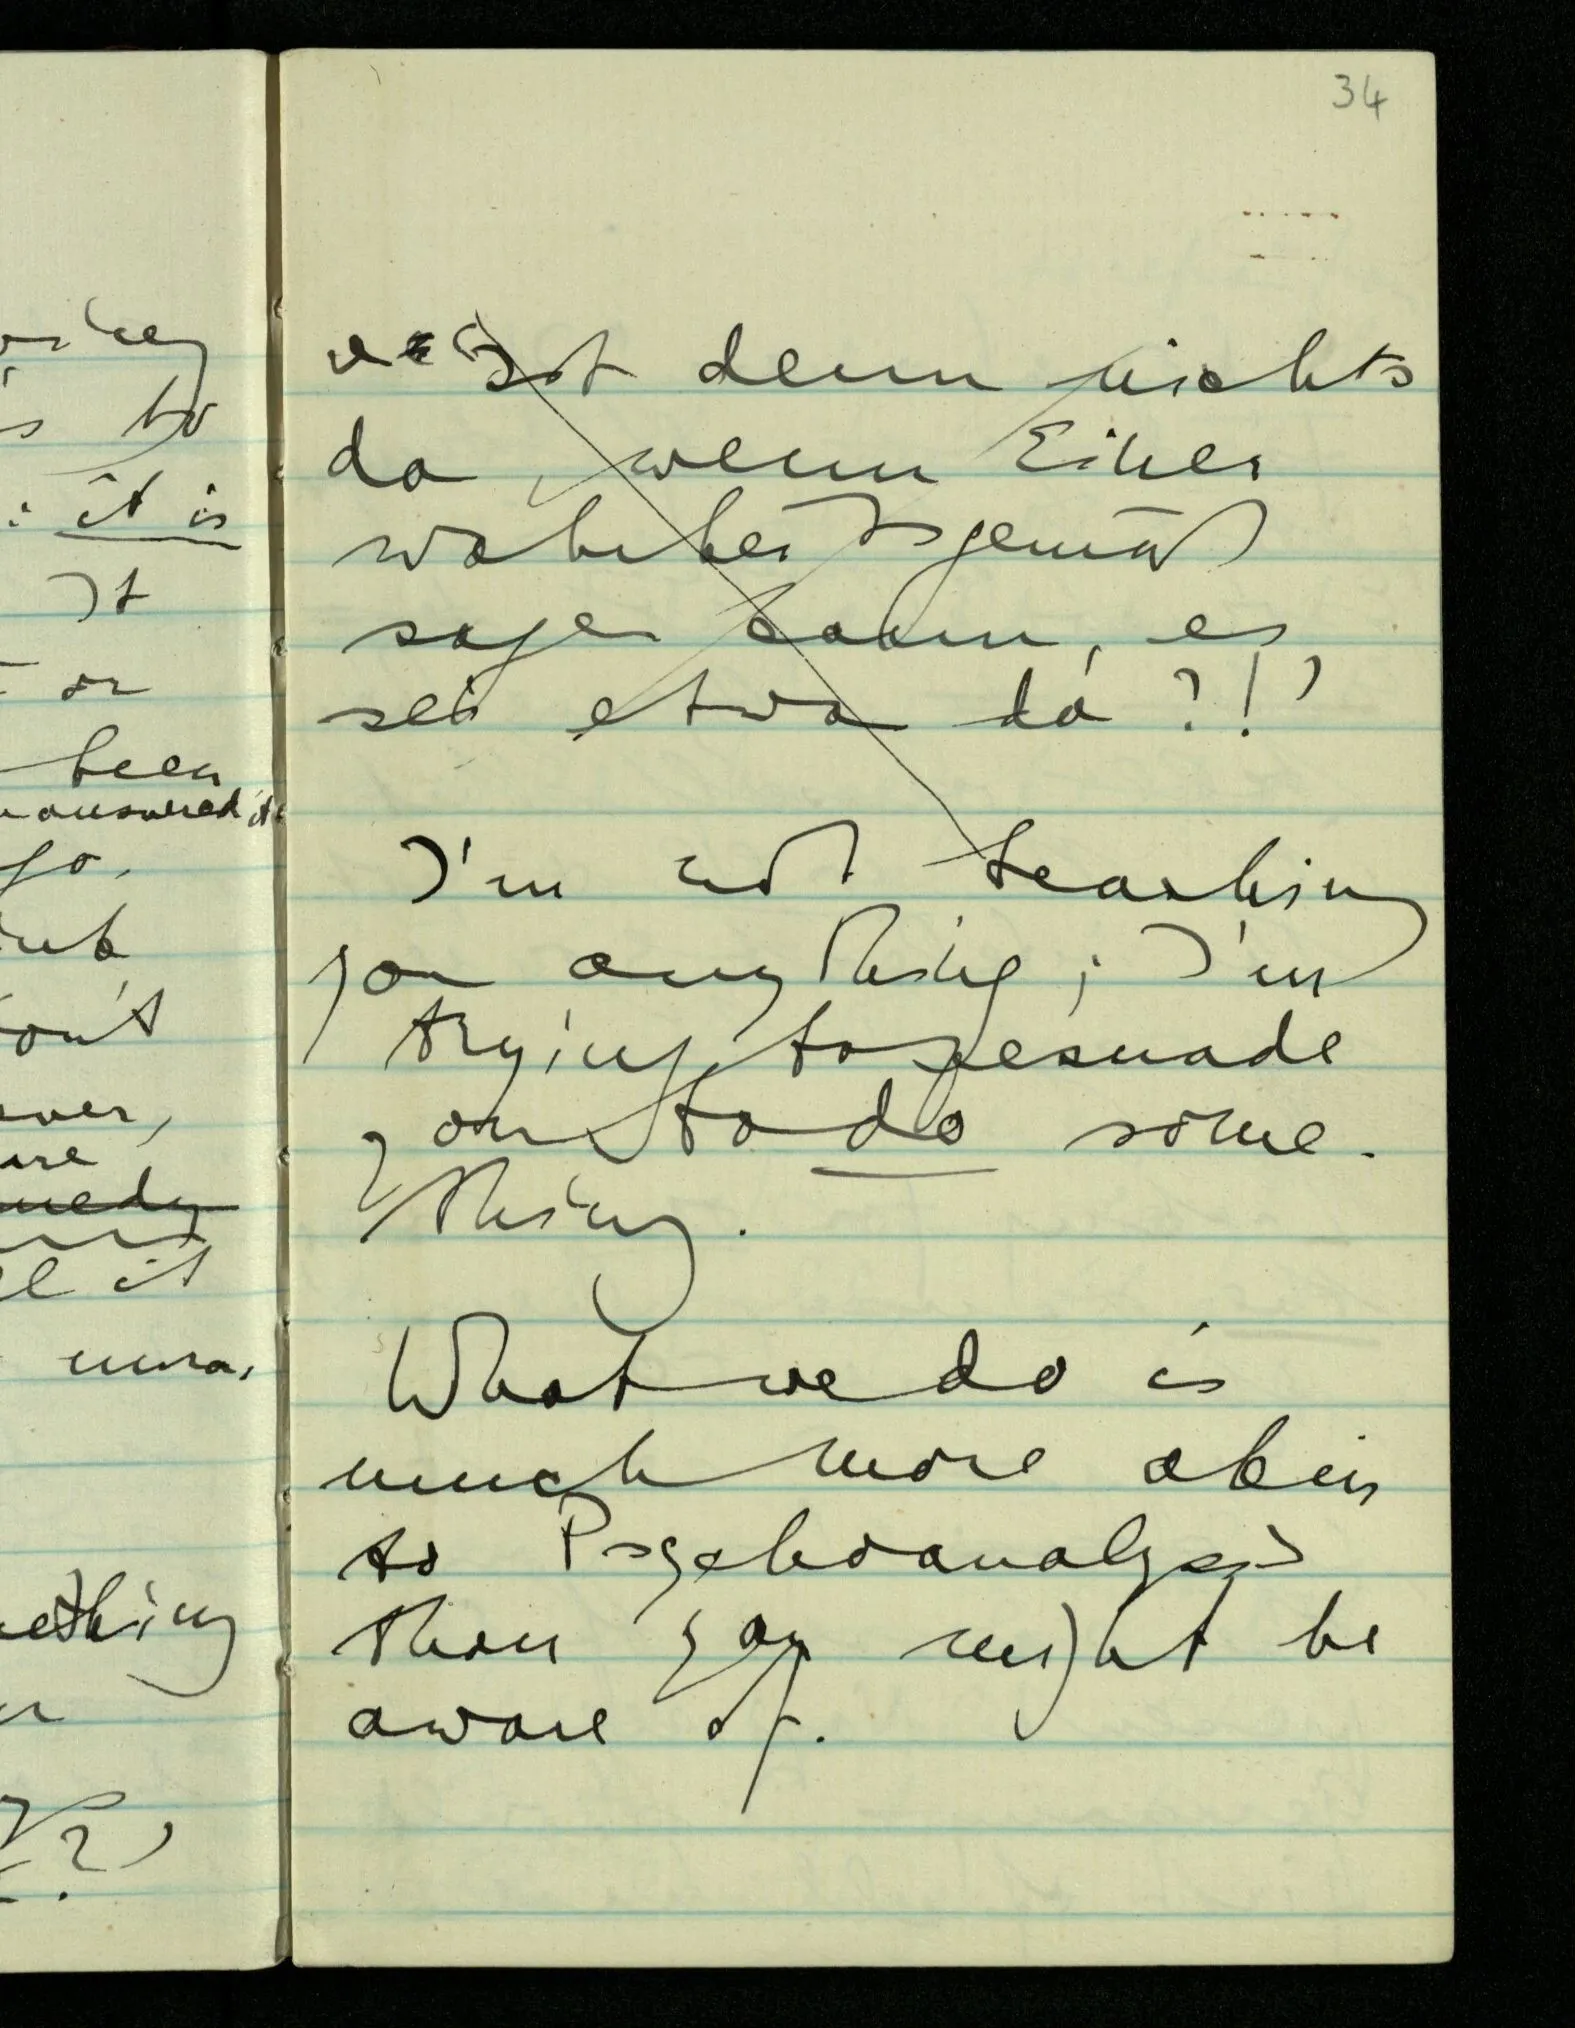 34
orkey
s to
: it is
It
or
been
answered it
go.
on't
over,
are
l it
ething
?)
"Ist denn nichts
da, wenn Einer
wahrheitsgemäß
sagen kann, es
sei etwa da?!"
I'm not teaching
you anything; I'm
trying to pesuade
you to do some-
thing.
What we do is
much more akin
to Psychoanalysis
than you might be
aware of.